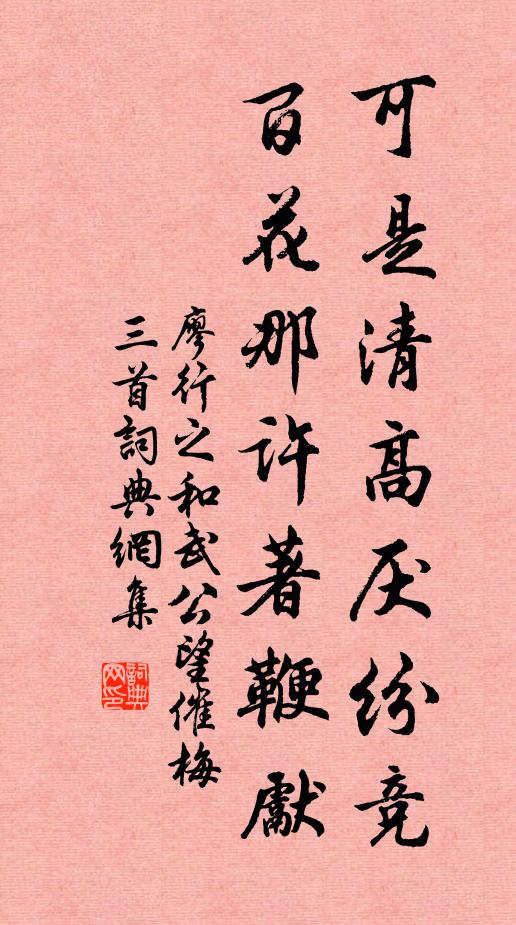 可是清高厌纷竞
百花那许著鞭獻
廖行之和武公望催梅
三首詞典網集
詞典网印